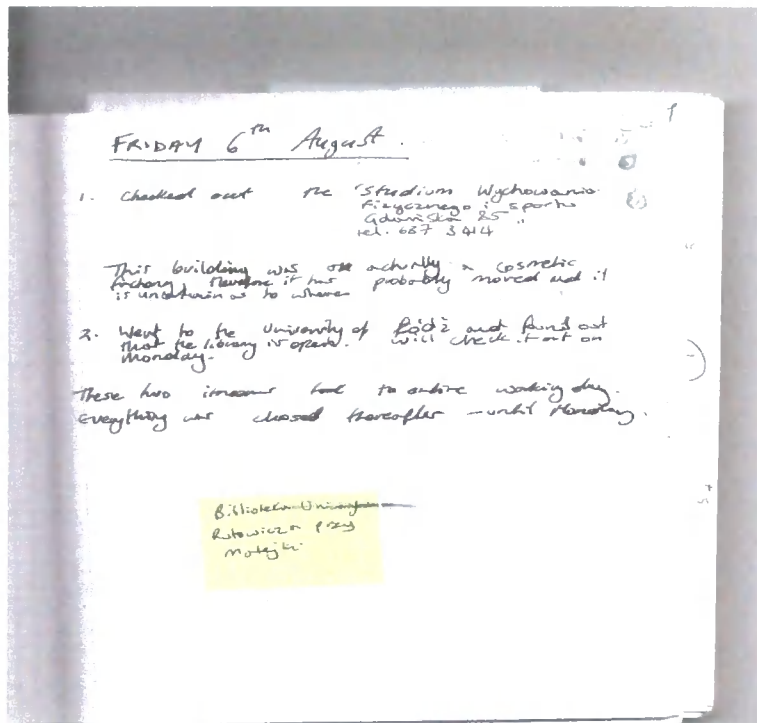 1
FRIDAY 6th August.
1. Checked out the "Studium Wychowania
Fizycznego i sportu
Gdańska 85"
tel. 637 3414
This building was actually a cosmetic
factory, therefore it has probably moved and it
is uncertain as to where
2. Went to the University of Łódź and found out
that the library is open. Will check it out on
Monday.
These two the entire working day.
Everything was closed thereafter - until Monday.
Biblioteka
przy
Matejki